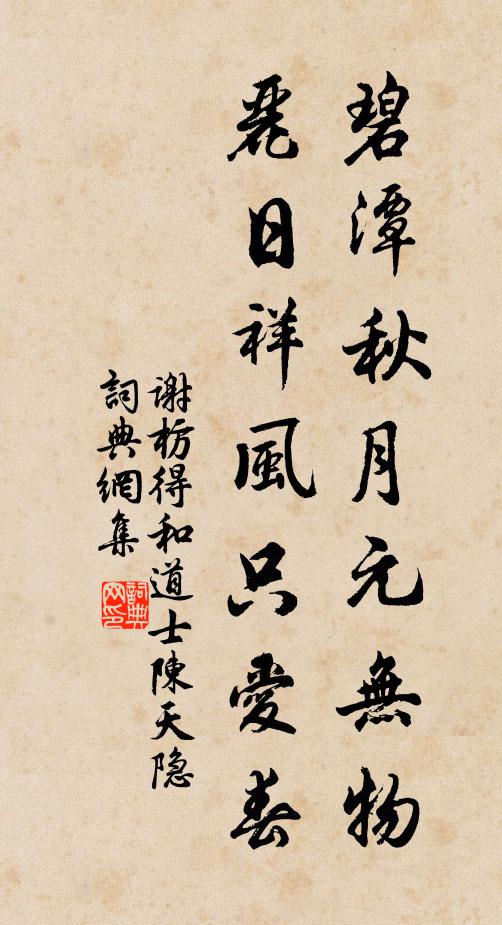 碧潭秋月元無物
麗日祥風只愛春
谢枋得和道士陳天隐
詞典網集
詞典
网印